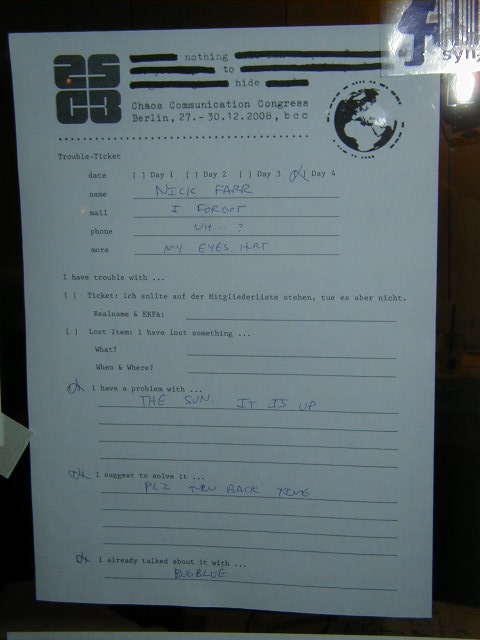 25
C3
nothing
to
hide
Chaos Communication Congress
Berlin, 27.-30.12.2008, bcc
Trouble-Ticket
date [ ] Day 1 [ ] Day 2 [ ] Day 3 [X] Day 4
name NICK FARR
mail I FORGOT
phone UH... ?
more MY EYES HURT
I have trouble with ...
[ ] Ticket: Ich sollte auf der Mitgliederliste stehen, tue es aber nicht.
Realname & ERFA:
[ ] Lost Item: i have lost something ...
What?
When & Where?
[X] I have a problem with ...
THE SUN. IT IS UP
[X] I suggest to solve it ...
PLZ TURN BACK TIME
[X] I already talked about it with ...
BUGBLUE